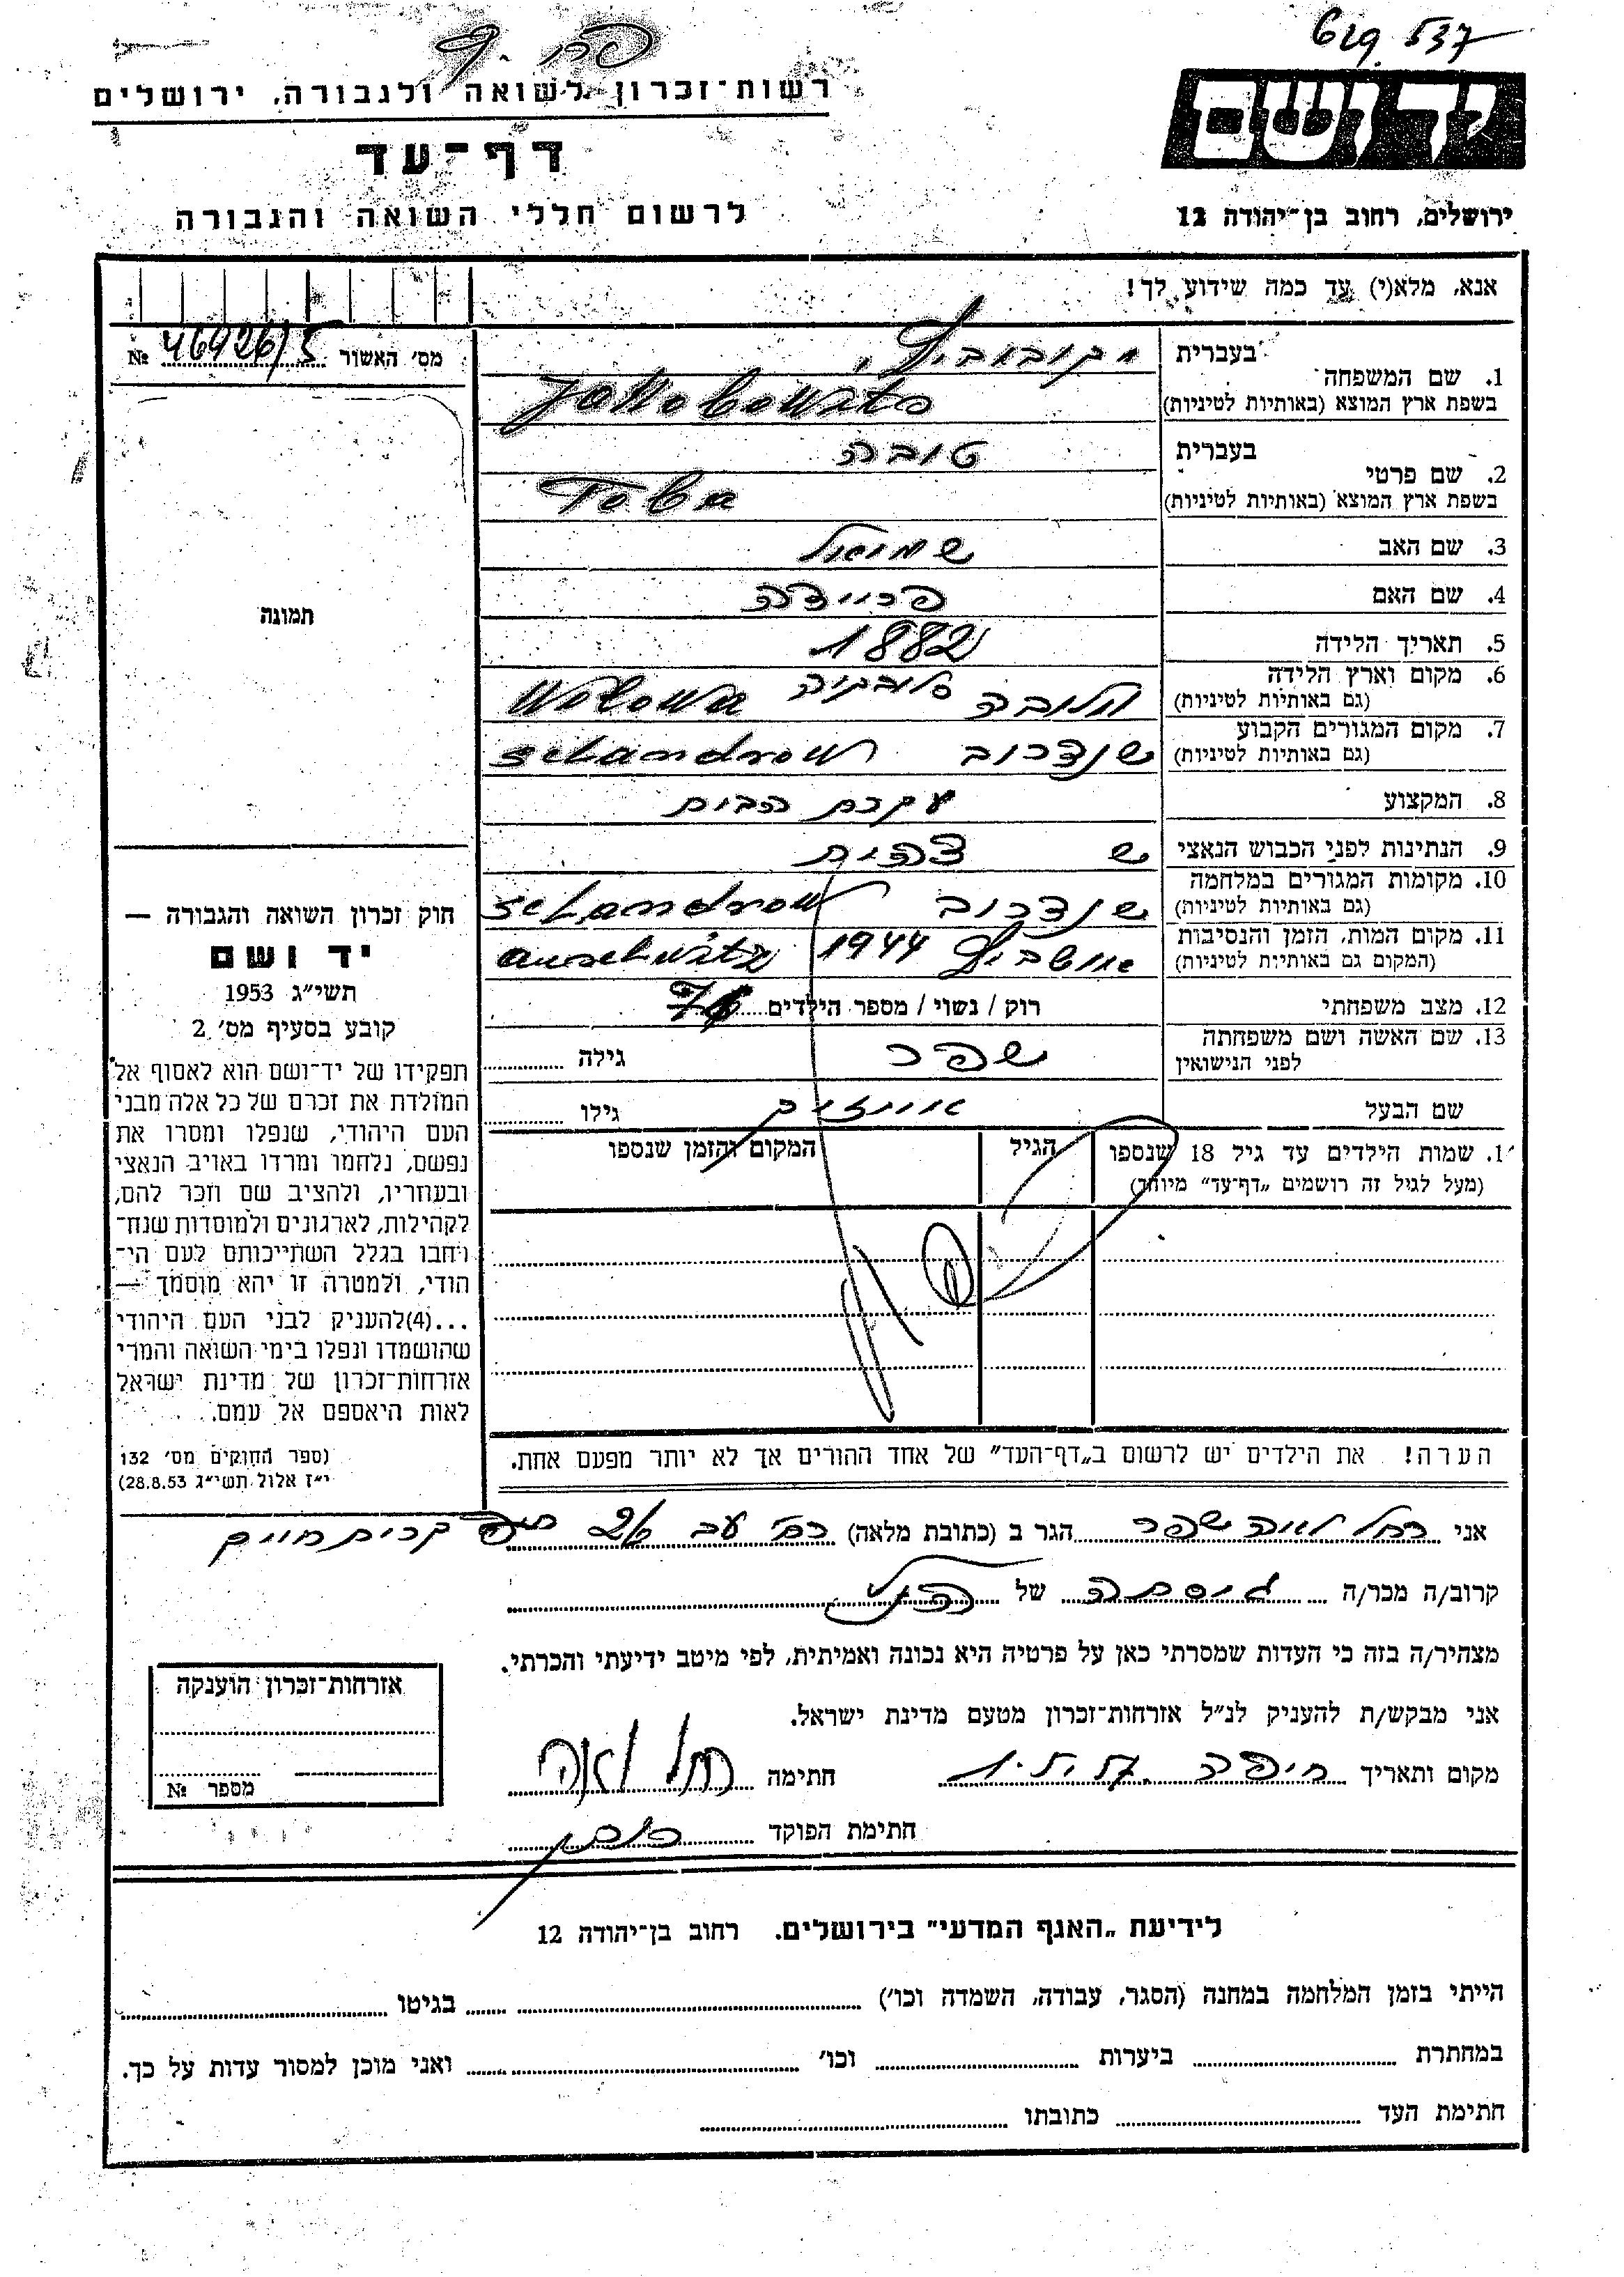 619 537
רשות־זכרון לשואה ולגבורה, ירושלים
יד ושם
דף־עד
לרשום חללי השואה והגבורה
ירושלים, רחוב בן־יהודה 12
אנא, מלא(י) עד כמה שידוע לך!
מס׳ האשור № 46926/5
בעברית יקובוביץ,
1. שם המשפחה
בשפת ארץ המוצא (באותיות לטיניות) Jakobowits
בעברית טובה
2. שם פרטי
בשפת ארץ המוצא (באותיות לטיניות) Toba
3. שם האב שמואל
4. שם האם פריידה
5. תאריך הלידה 1882
6. מקום וארץ הלידה
(גם באותיות לטיניות) וולובה סלובקיה Wolowa
7. מקום המגורים הקבוע
(גם באותיות לטיניות) שנדרוב schandrow
8. המקצוע עקרת הבית
9. הנתינות לפני הכבוש הנאצי
10. מקומות המגורים במלחמה
(גם באותיות לטיניות) שנדרוב schandrow
11. מקום המות, הזמן והנסיבות
(המקום גם באותיות לטיניות) אושביץ 1944 auschwitz
12. מצב משפחתי רוק / נשוי / מספר הילדים
13. שם האשה ושם משפחתה
לפני הנישואין שפר גילה
שם הבעל אייזיק גילו
1. שמות הילדים עד גיל 18 שנספו
(מעל לגיל זה רושמים „דף־עד” מיוחד)
הגיל
המקום והזמן שנספו
הערה! את הילדים יש לרשום ב„דף־העד” של אחד ההורים אך לא יותר מפעם אחת.
תמונה
חוק זכרון השואה והגבורה —
יד ושם
תשי״ג 1953
קובע בסעיף מס׳ 2
תפקידו של יד־ושם הוא לאסוף אל
המולדת את זכרם של כל אלה מבני
העם היהודי, שנפלו ומסרו את
נפשם, נלחמו ומרדו באויב הנאצי
ובעוזריו, ולהציב שם וזכר להם,
לקהילות, לארגונים ולמוסדות שנח־
רבו בגלל השתייכותם לעם הי־
הודי, ולמטרה זו יהא מוסמך —
...(4)להעניק לבני העם היהודי
שהושמדו ונפלו בימי השואה והמרי
אזרחות־זכרון של מדינת ישראל
לאות היאספם אל עמם.
(ספר החוקים מס׳ 132
י״ז אלול תשי״ג 28.8.53)
אני רחל לאה שפר הגר ב (כתובת מלאה) רח׳ עב 2/6 חיפה קרית חיים
קרוב/ה מכר/ה גיסתה של הנ״ל
מצהיר/ה בזה כי העדות שמסרתי כאן על פרטיה היא נכונה ואמיתית, לפי מיטב ידיעתי והכרתי.
אני מבקש/ת להעניק לנ״ל אזרחות־זכרון מטעם מדינת ישראל.
מקום ותאריך חיפה חתימה רחל לאה
חתימת הפוקד
אזרחות־זכרון הוענקה
מספר №
לידיעת „האגף המדעי” בירושלים. רחוב בן־יהודה 12
הייתי בזמן המלחמה במחנה (הסגר, עבודה, השמדה וכו׳) בגיטו
במחתרת ביערות וכו׳ ואני מוכן למסור עדות על כך.
חתימת העד כתובתו